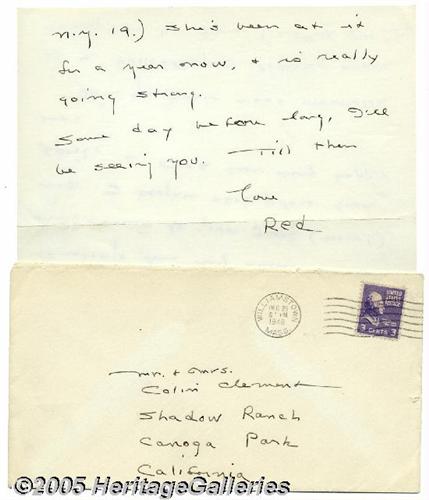 N.Y. 19.) She's been at it
for a year now, & is really
going strong.
Some day before long, I'll
be seeing you. Till then
Love
Red
WILLIAMSTOWN
1948
MASS.
UNITED STATES POSTAGE
3 CENTS 3
Mr. & Mrs.
Colin Clement
Shadow Ranch
Canoga Park
California
©2005 HeritageGalleries